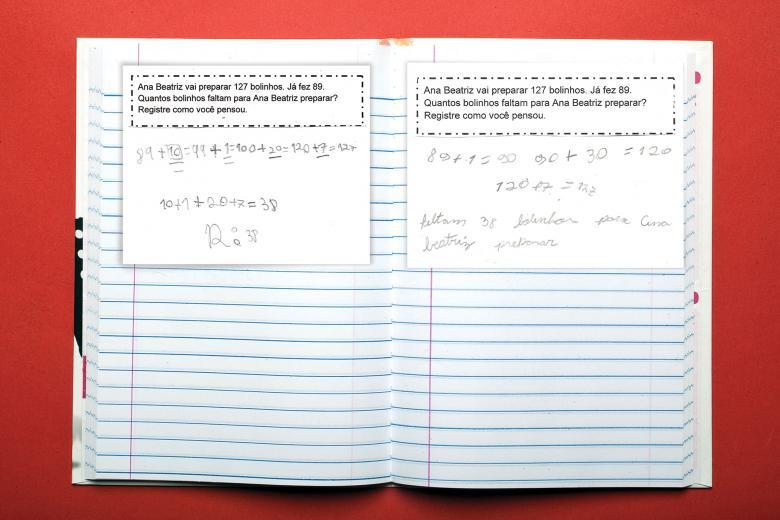 Ana Beatriz vai preparar 127 bolinhos. Já fez 89.
Quantos bolinhos faltam para Ana Beatriz preparar?
Registre como você pensou.
89+10=99+1=100+20=120+7=127
10+1+20+7=38
R: 38
Ana Beatriz vai preparar 127 bolinhos. Já fez 89.
Quantos bolinhos faltam para Ana Beatriz preparar?
Registre como você pensou.
89+1=90 90+30=120
120+7=127
faltam 38 bolinhos para Ana
beatriz preparar